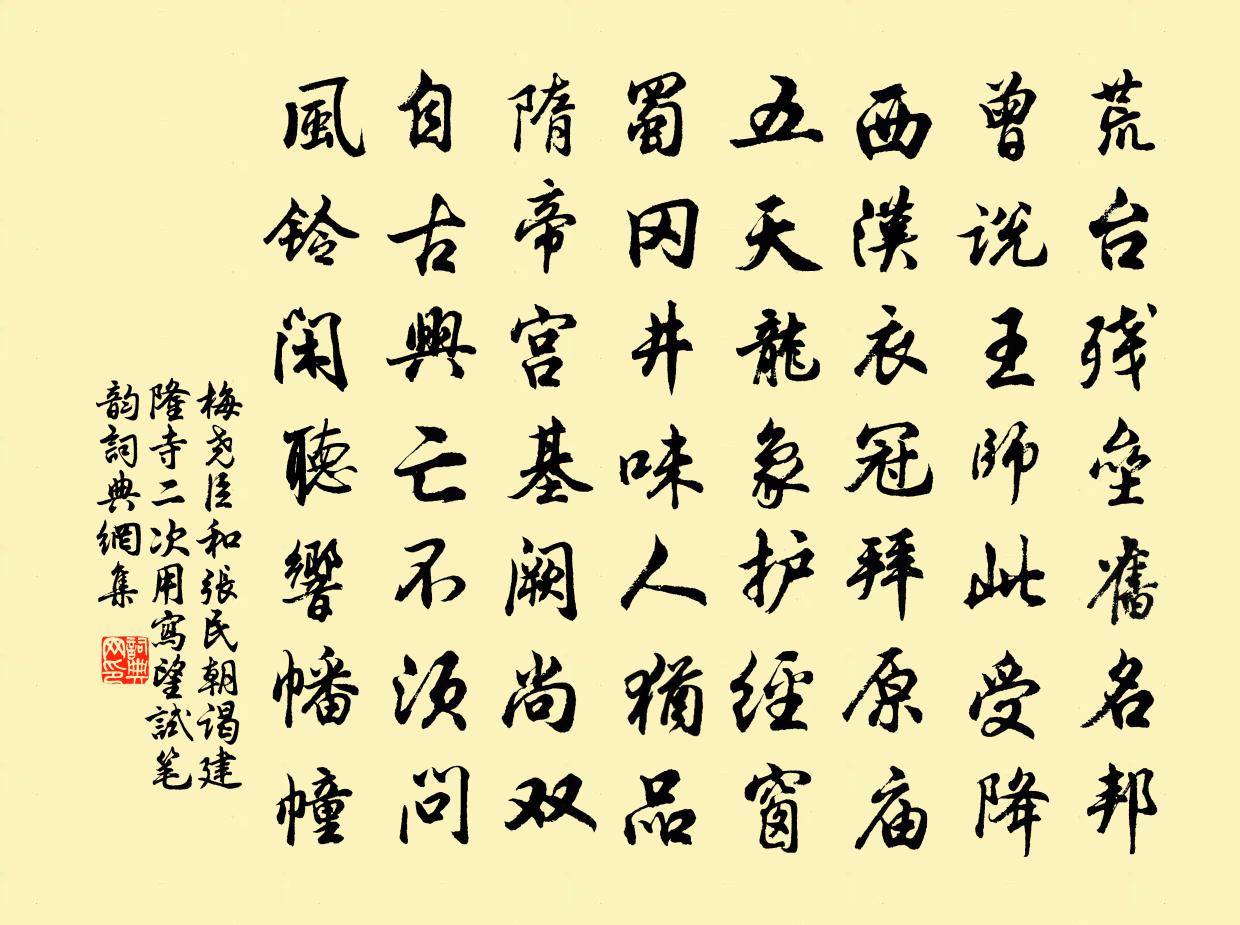 荒台残垒旧名邦
曾说王师此受降
西漢衣冠拜原庙
五天龍象护經窗
蜀冈井味人猶品
隋帝宫基阙尚双
自古興亡不须问
風铃闲聽響幡幢
梅尧臣和張民朝谒建
隆寺二次用寫望試笔
韵詞典網集
詞典网印